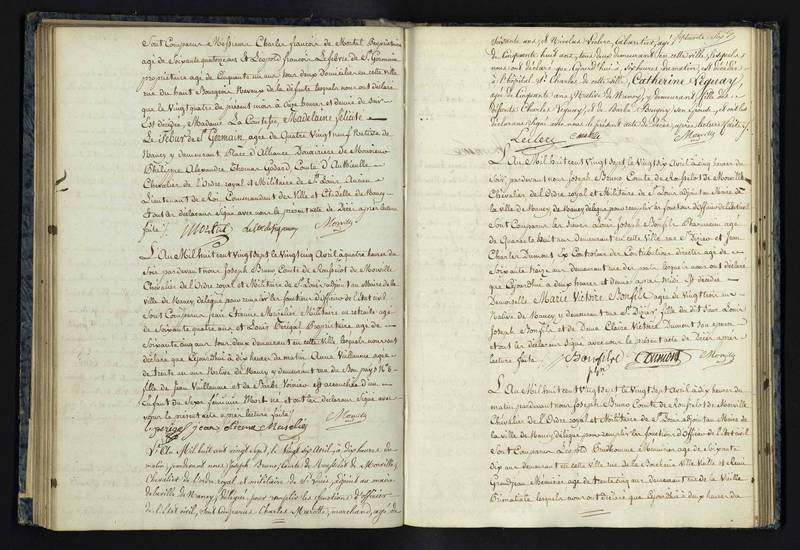 Sont Comparus Messieurs Charles françois de Mortet Propriétaire
agé de Soixante quatorze ans et Léopold françois Lefebvre de St. Germain
propriétaire agé de Cinquante un ans tous deux domiciliés en cette ville
rue du haut Bourgeois Neveux de la défunte lesquels nous ont déclaré
que le Vingt quatre du présent mois à onze heures et demie du Soir
Est décédée, Madame La Comtesse, Madelaine félicité
Le Febvre de St. Germain, agée de Quatre Vingt neuf Native de
Nancy y demeurant Place d'Alliance Douairière de Monsieur
Philippe Alexandre Thomas Comte d'
Chevalier de l'Ordre royal et Militaire de St. Louis Ancien
Lieutenant de Roi Commandant des Ville et Citadelle de Nancy
et ont les déclarans Signé avec nous le présent acte de Décès après lecture
faite.
L'An Mil huit cent Vingt sept le Vingt cinq Avril à quatre heures du
Soir par devant nous Joseph Bruno Comte de Rousselot de Morville
Chevalier de l'Ordre royal et Militaire de St. Louis adjoint au Maire de la
Ville de Nancy délégué pour remplir les fonctions d'Officier de l'Etat civil
Sont Comparus Jean Etienne Militaire en retraite agé
de Soixante quatre ans et Louis Propriétaire agé de
Soixante cinq ans tous deux demeurant en cette Ville lesquels nous ont
déclaré que Cejourd'hui à dix heures du matin Anne Vuillaume agée
de trente un ans Native de Nancy y demeurant rue du Bon pays N° 6
fille de Jean Vuillaume et de Barbe est accouchée d'un
Enfant du Sexe féminin Mort né et ont les déclarans Signé avec
nous le présent acte après lecture faite.
Morville
L'An Mil huit cent vingt sept, le vingt six Avril, à dix heures du
matin, pardevant nous Joseph Bruno, Comte de Rousselot de Morville,
Chevalier de l'ordre royal et militaire de St. Louis, adjoint au maire
de la ville de Nancy, délégué pour remplir les fonctions d'officier
de l'Etat civil, sont comparus Charles marchand, agé de
soixante ans, et Nicolas Leclerc, agé
de Cinquante huit ans, tous deux demeurant en cette ville, lesquels
nous ont déclaré que Cejourd'hui à six heures du matin, est décédée
à l'hôpital St. Charles de cette ville, Catherine Lequay,
agée de Cinquante ans, Native de Nancy, y demeurant, fille des
défunts Charles Lequay, et de Barbe et ont les
déclarans Signé avec nous le présent acte de décès, après lecture faite.
Leclerc Morville
L'An Mil huit cent Vingt sept le Vingt six Avril à cinq heures du
Soir, par devant nous Joseph Bruno Comte de Rousselot de Morville
Chevalier de l'Ordre royal et Militaire de St. Louis adjoint au Maire de
la Ville de Nancy délégué pour remplir les fonctions d'Officier de l'Etat civil
Sont Comparus les Sieurs Louis Joseph Bonfils Pharmacien agé
de Quarante huit ans demeurant en cette Ville rue St. Dizier et Jean
Charles Dumont Ex Controleur des Contributions directes agé de
Soixante treize ans demeurant rue lesquels nous ont déclaré
que Cejourd'hui à deux heures et demie après midi Est décédée
Demoiselle Marie Victoire Bonfils agée de Vingt trois ans
Native de Nancy y demeurant rue St. Dizier fille du dit Sieur Louis
Joseph Bonfils et de Dame Claire Victoire Dumont Son épouse
et ont les déclarans Signé avec nous le présent acte de Décès après
lecture faite. Bonfils Dumont Morville
L'An Mil huit cent Vingt sept le Vingt sept Avril à dix heures du
matin, par devant nous Joseph Bruno Comte de Rousselot de Morville
Chevalier de l'Ordre royal et Militaire de St. Louis adjoint au Maire de
la Ville de Nancy délégué pour remplir les fonctions d'Officier de l'Etat civil
Sont Comparus Léopold Prudhomme agé de Soixante
dix ans demeurant en cette Ville rue de la Ville Vieille et Remi
Grandjean Menuisier agé de trente cinq ans demeurant rue de la Vieille
Primatiale lesquels nous ont déclaré que Cejourd'hui à deux heures du